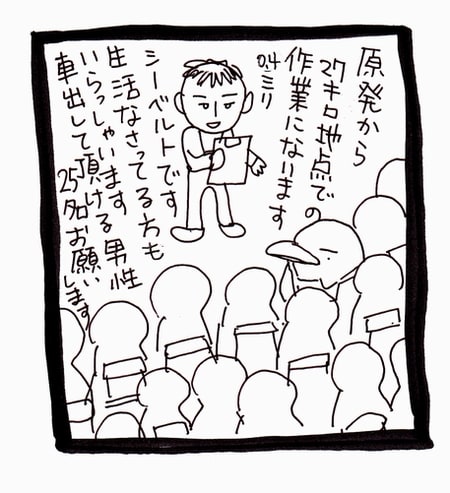 原発から
27キロ地点での
作業になります
0.4ミリ
シーベルトです
生活なさってる方も
いらっしゃいます
車出して頂ける男性
25名お願いします